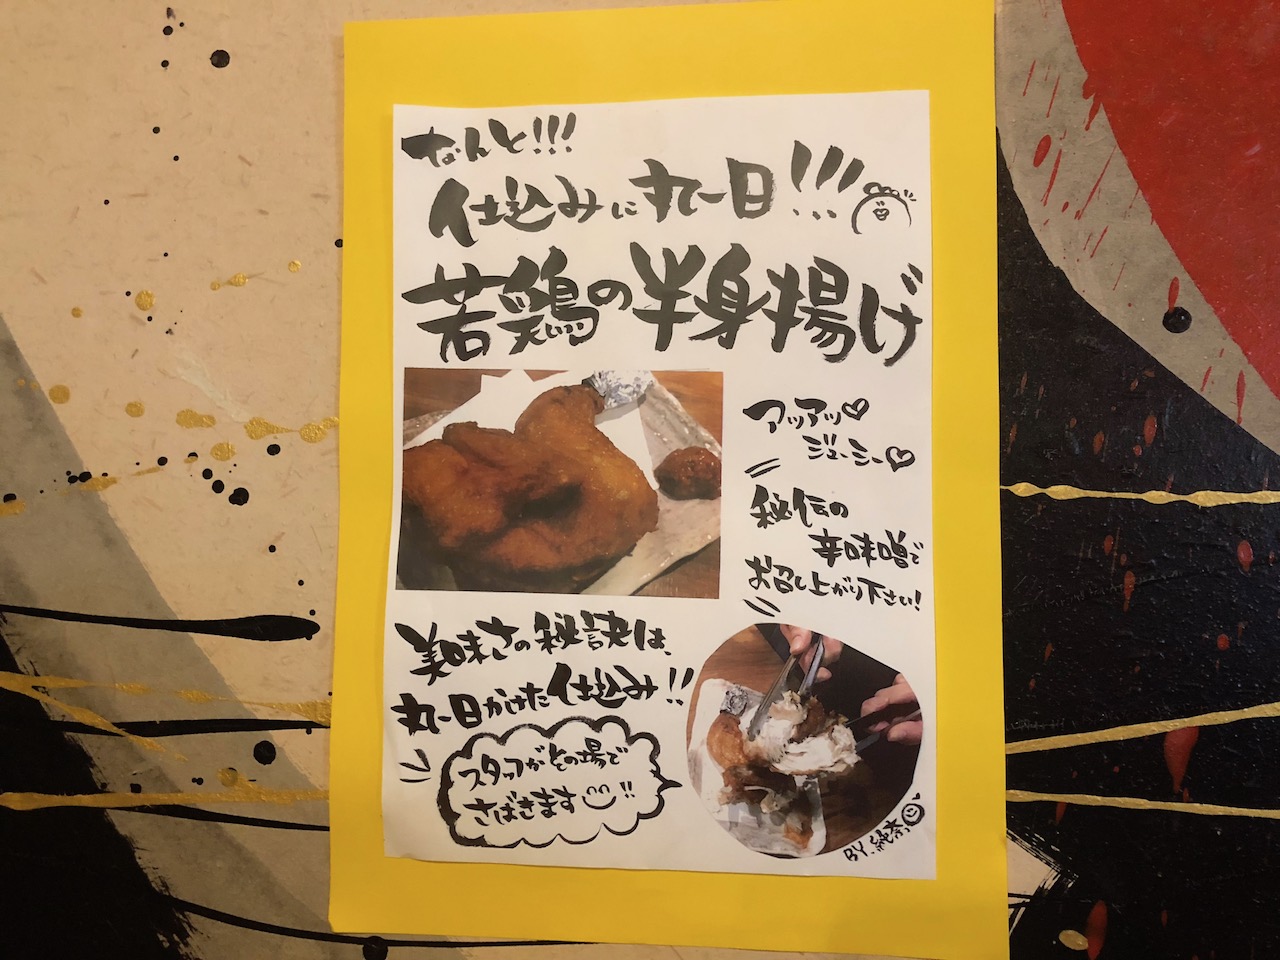 なんと!!!
仕込みに丸一日!!!
若鶏の半身揚げ
アッアッ♡
ジューシー♡
秘伝の
辛味噌で
お召し上がり下さい!
美味さの秘訣は、
丸一日かけた仕込み!!
スタッフがその場で
さばきます!!
BY.純奈